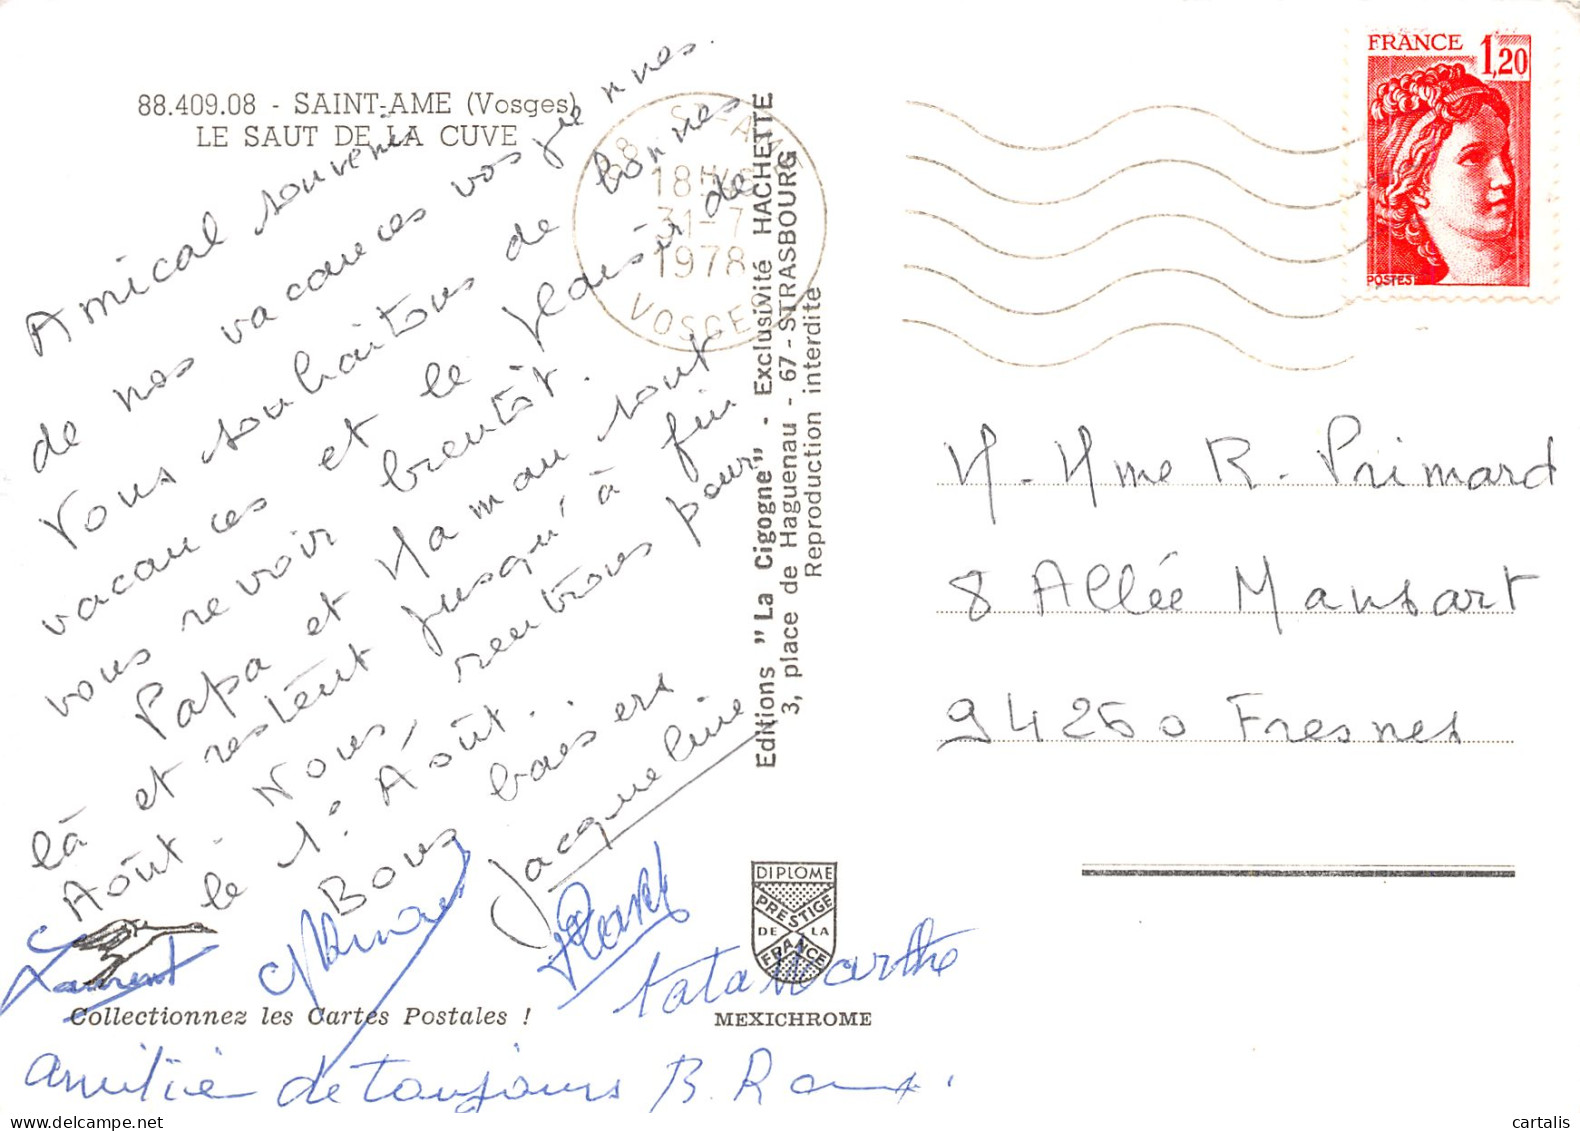 88.409.08 - SAINT-AME (Vosges)
LE SAUT DE LA CUVE
Amical souvenir
de nos vacances vosgiennes.
Vous souhaitons de bonnes
vacances et le plaisir de
vous revoir bientôt.
Papa et Maman sont
là et restent jusqu'à fin
Août. Nous, rentrons pour
le 1° Août.
Bons baisers
Jacqueline
Laurent
tata Marthe
amitié de toujours B.
Collectionnez les Cartes Postales !
Editions "La Cigogne" - Exclusivité HACHETTE
3, place de Haguenau - 67 - STRASBOURG
Reproduction interdite
DIPLOME
PRESTIGE
DE LA
FRANCE
MEXICHROME
88 ST AME
18H
31-7
1978
VOSGES
FRANCE 1,20
POSTES
M. Mme R. Primard
8 Allée Mansart
94260 Fresnes
cartalis